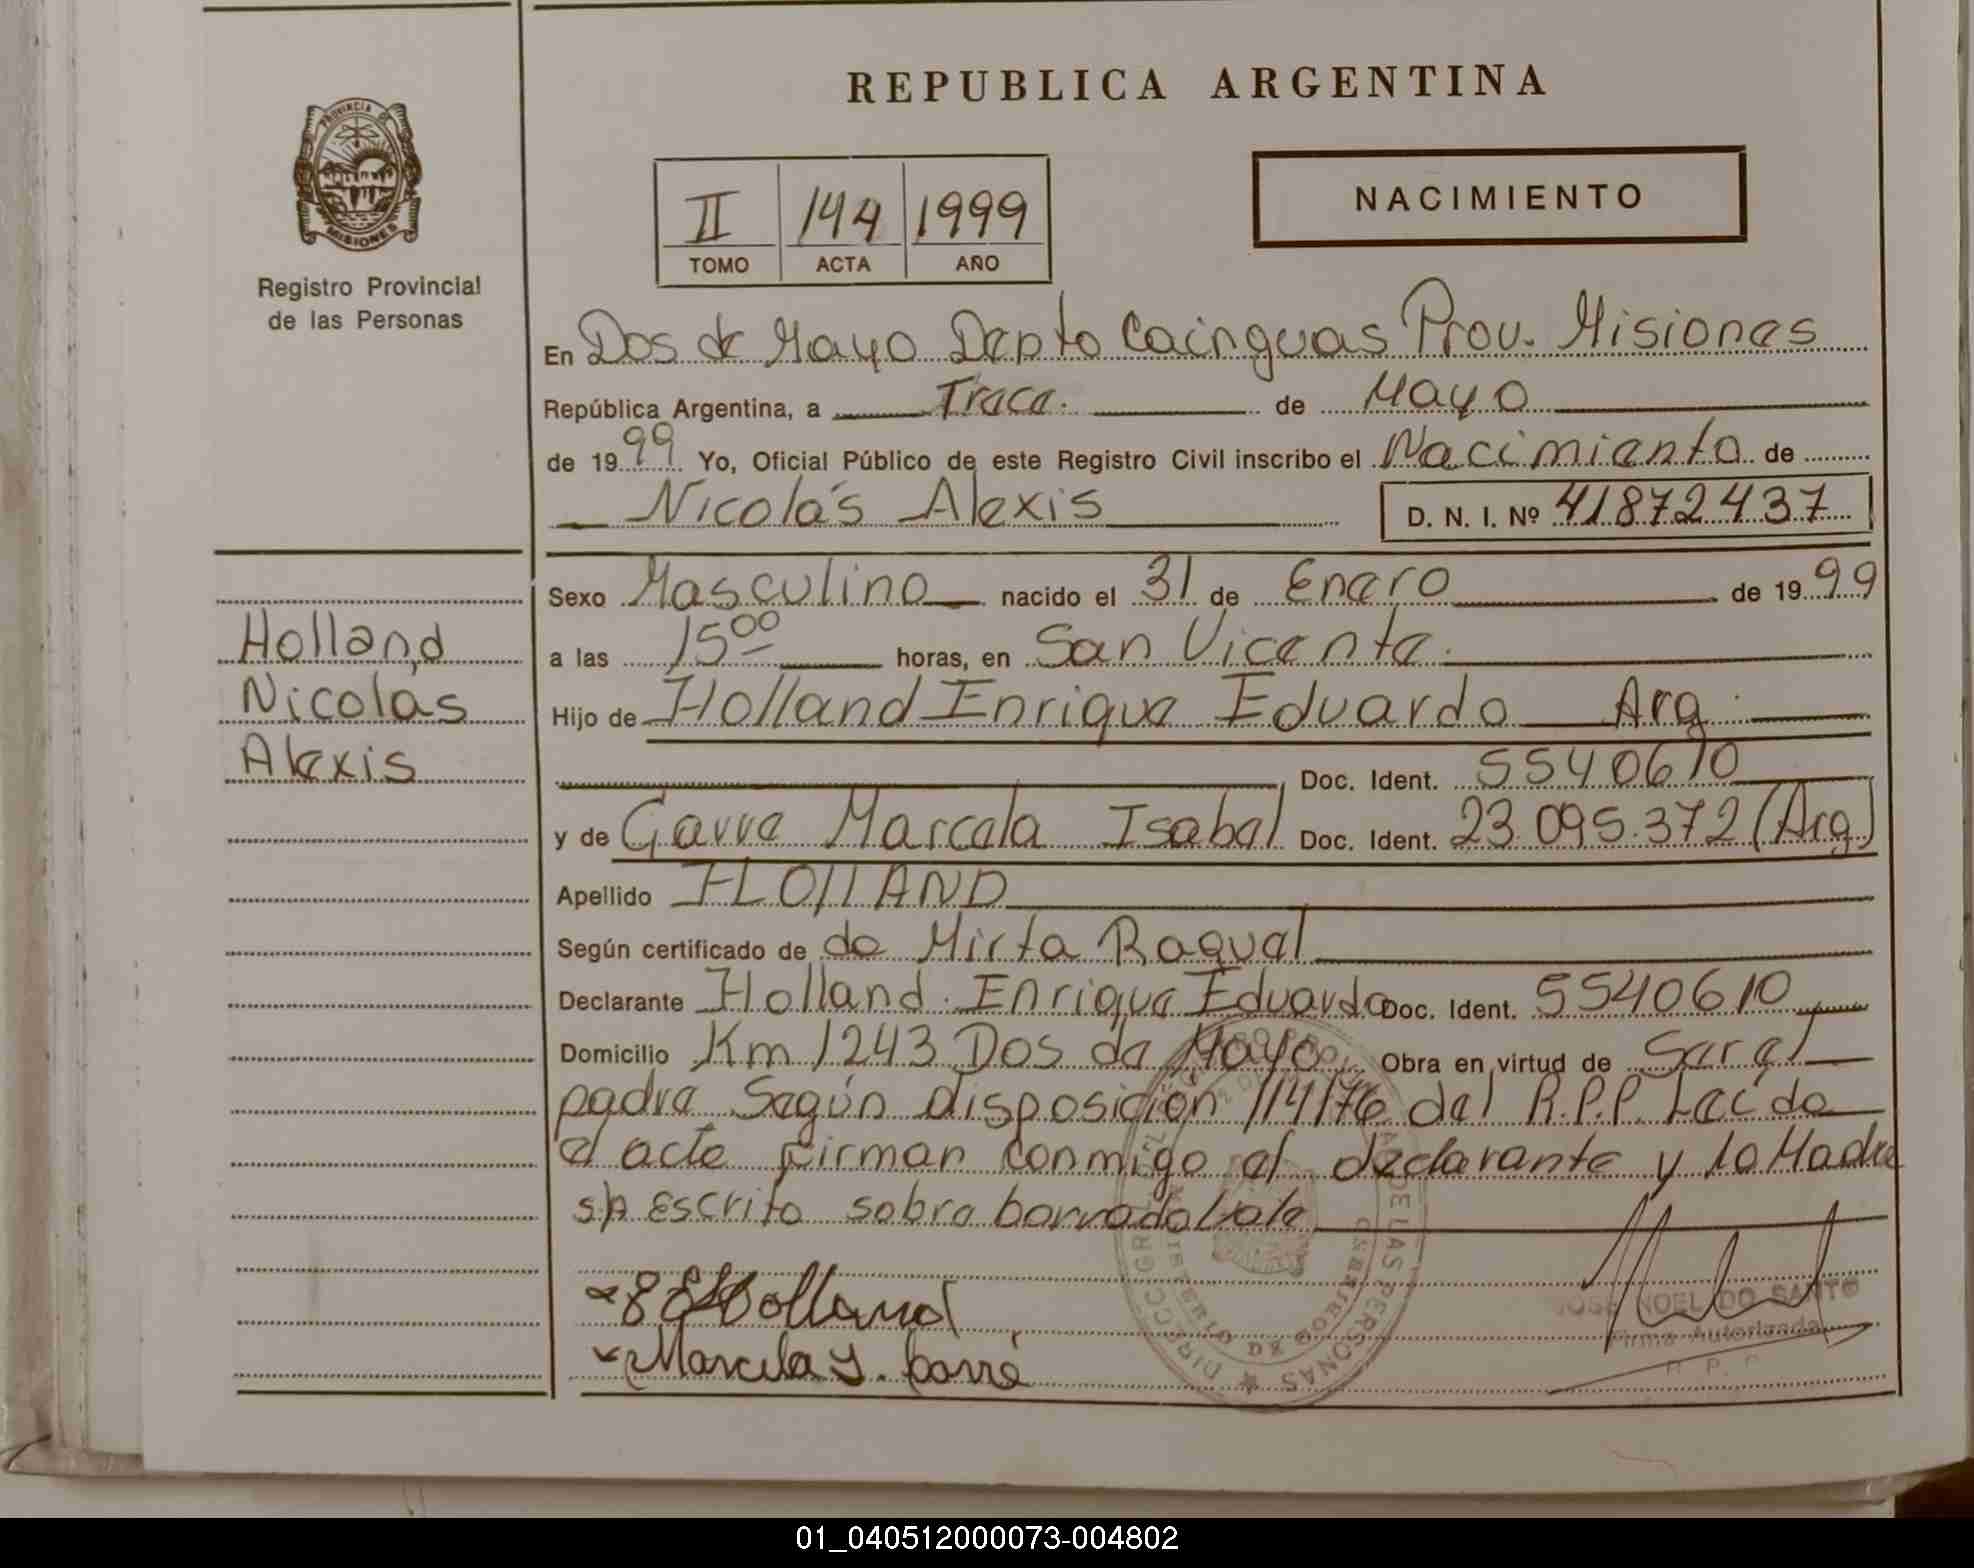 REPUBLICA ARGENTINA
PROVINCIA DE
MISIONES
Registro Provincial
de las Personas
II 144 1999
TOMO ACTA AÑO
NACIMIENTO
En Dos de Mayo Depto Cainguas Prov. Misiones
República Argentina, a Trece. de Mayo
de 1999 Yo, Oficial Público de este Registro Civil inscribo el Nacimiento de
Nicolás Alexis D. N. I. Nº 41872437
Sexo Masculino nacido el 31 de Enero de 1999
Holland
Nicolás
Alexis
a las 15 00 horas, en San Vicente.
Hijo de Holland Enrique Eduardo Arg.
Doc. Ident. 5540610
y de Garre Marcela Isabel Doc. Ident. 23.095.372 (Arg)
Apellido HOLLAND
Según certificado de de Mirta Raquel
Declarante Holland. Enrique Eduardo Doc. Ident. 5540610
Domicilio Km 1243 Dos de Mayo Obra en virtud de Ser el
padre Según disposición 114/76 del R.P.P. Leída
el acta firman conmigo el declarante y la Madre
s/A Escrito sobre borrado Vale
Holland
Marcela I. Garré
JOSE NOEL DO SANTO
Firma Autorizada
R. P. P.
DE LAS PERSONAS
01_040512000073-004802